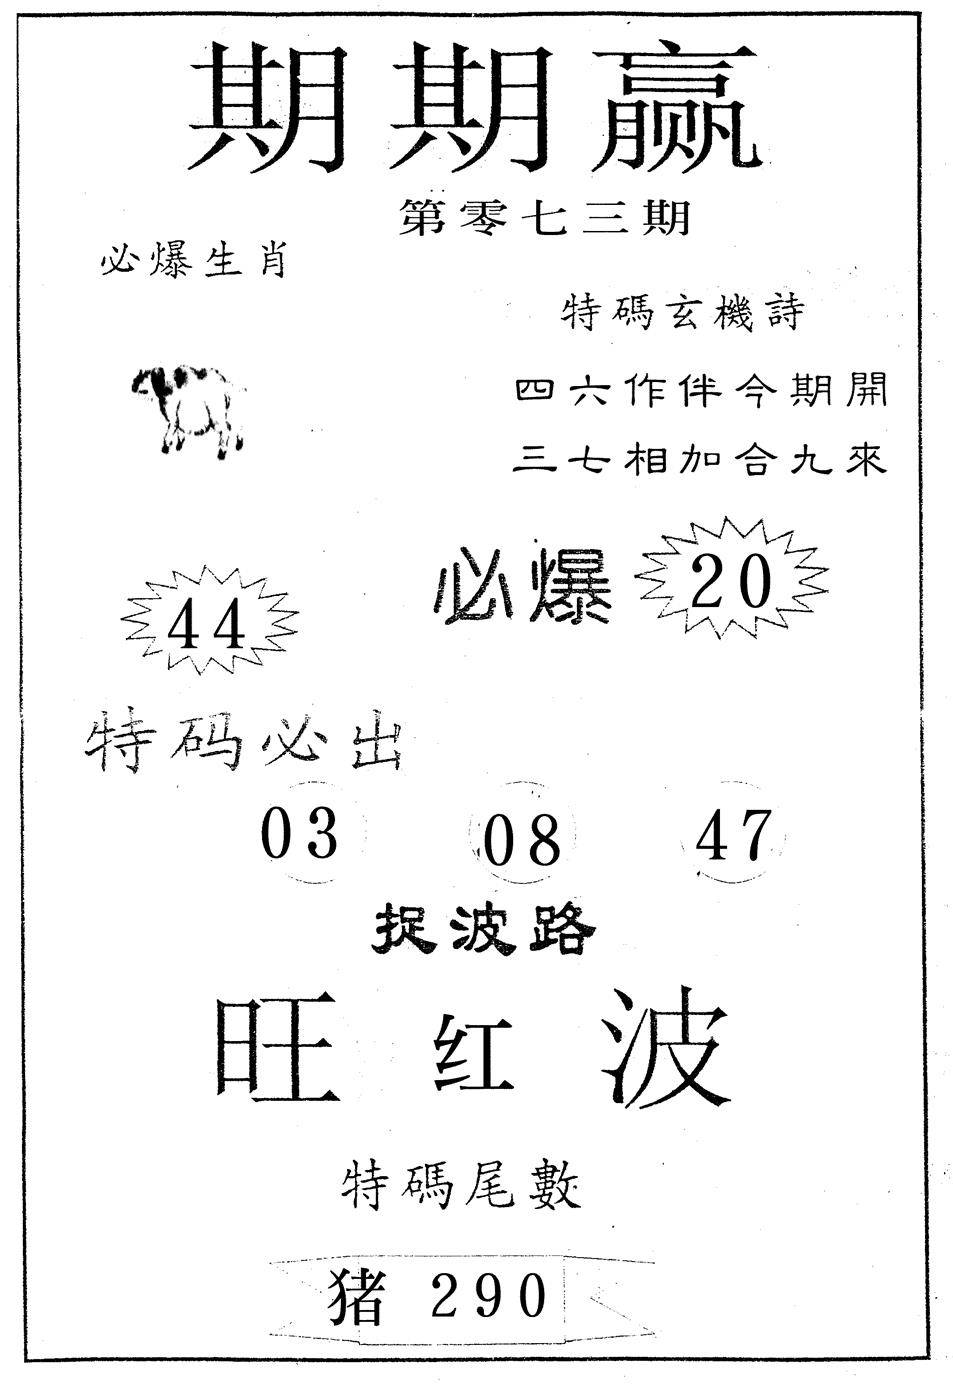 期期赢
第零七三期
必爆生肖
特碼玄機詩
四六作伴今期開
三七相加合九來
必爆 20
44
特码必出
03 08 47
捉波路
旺红波
特碼尾數
猪 290